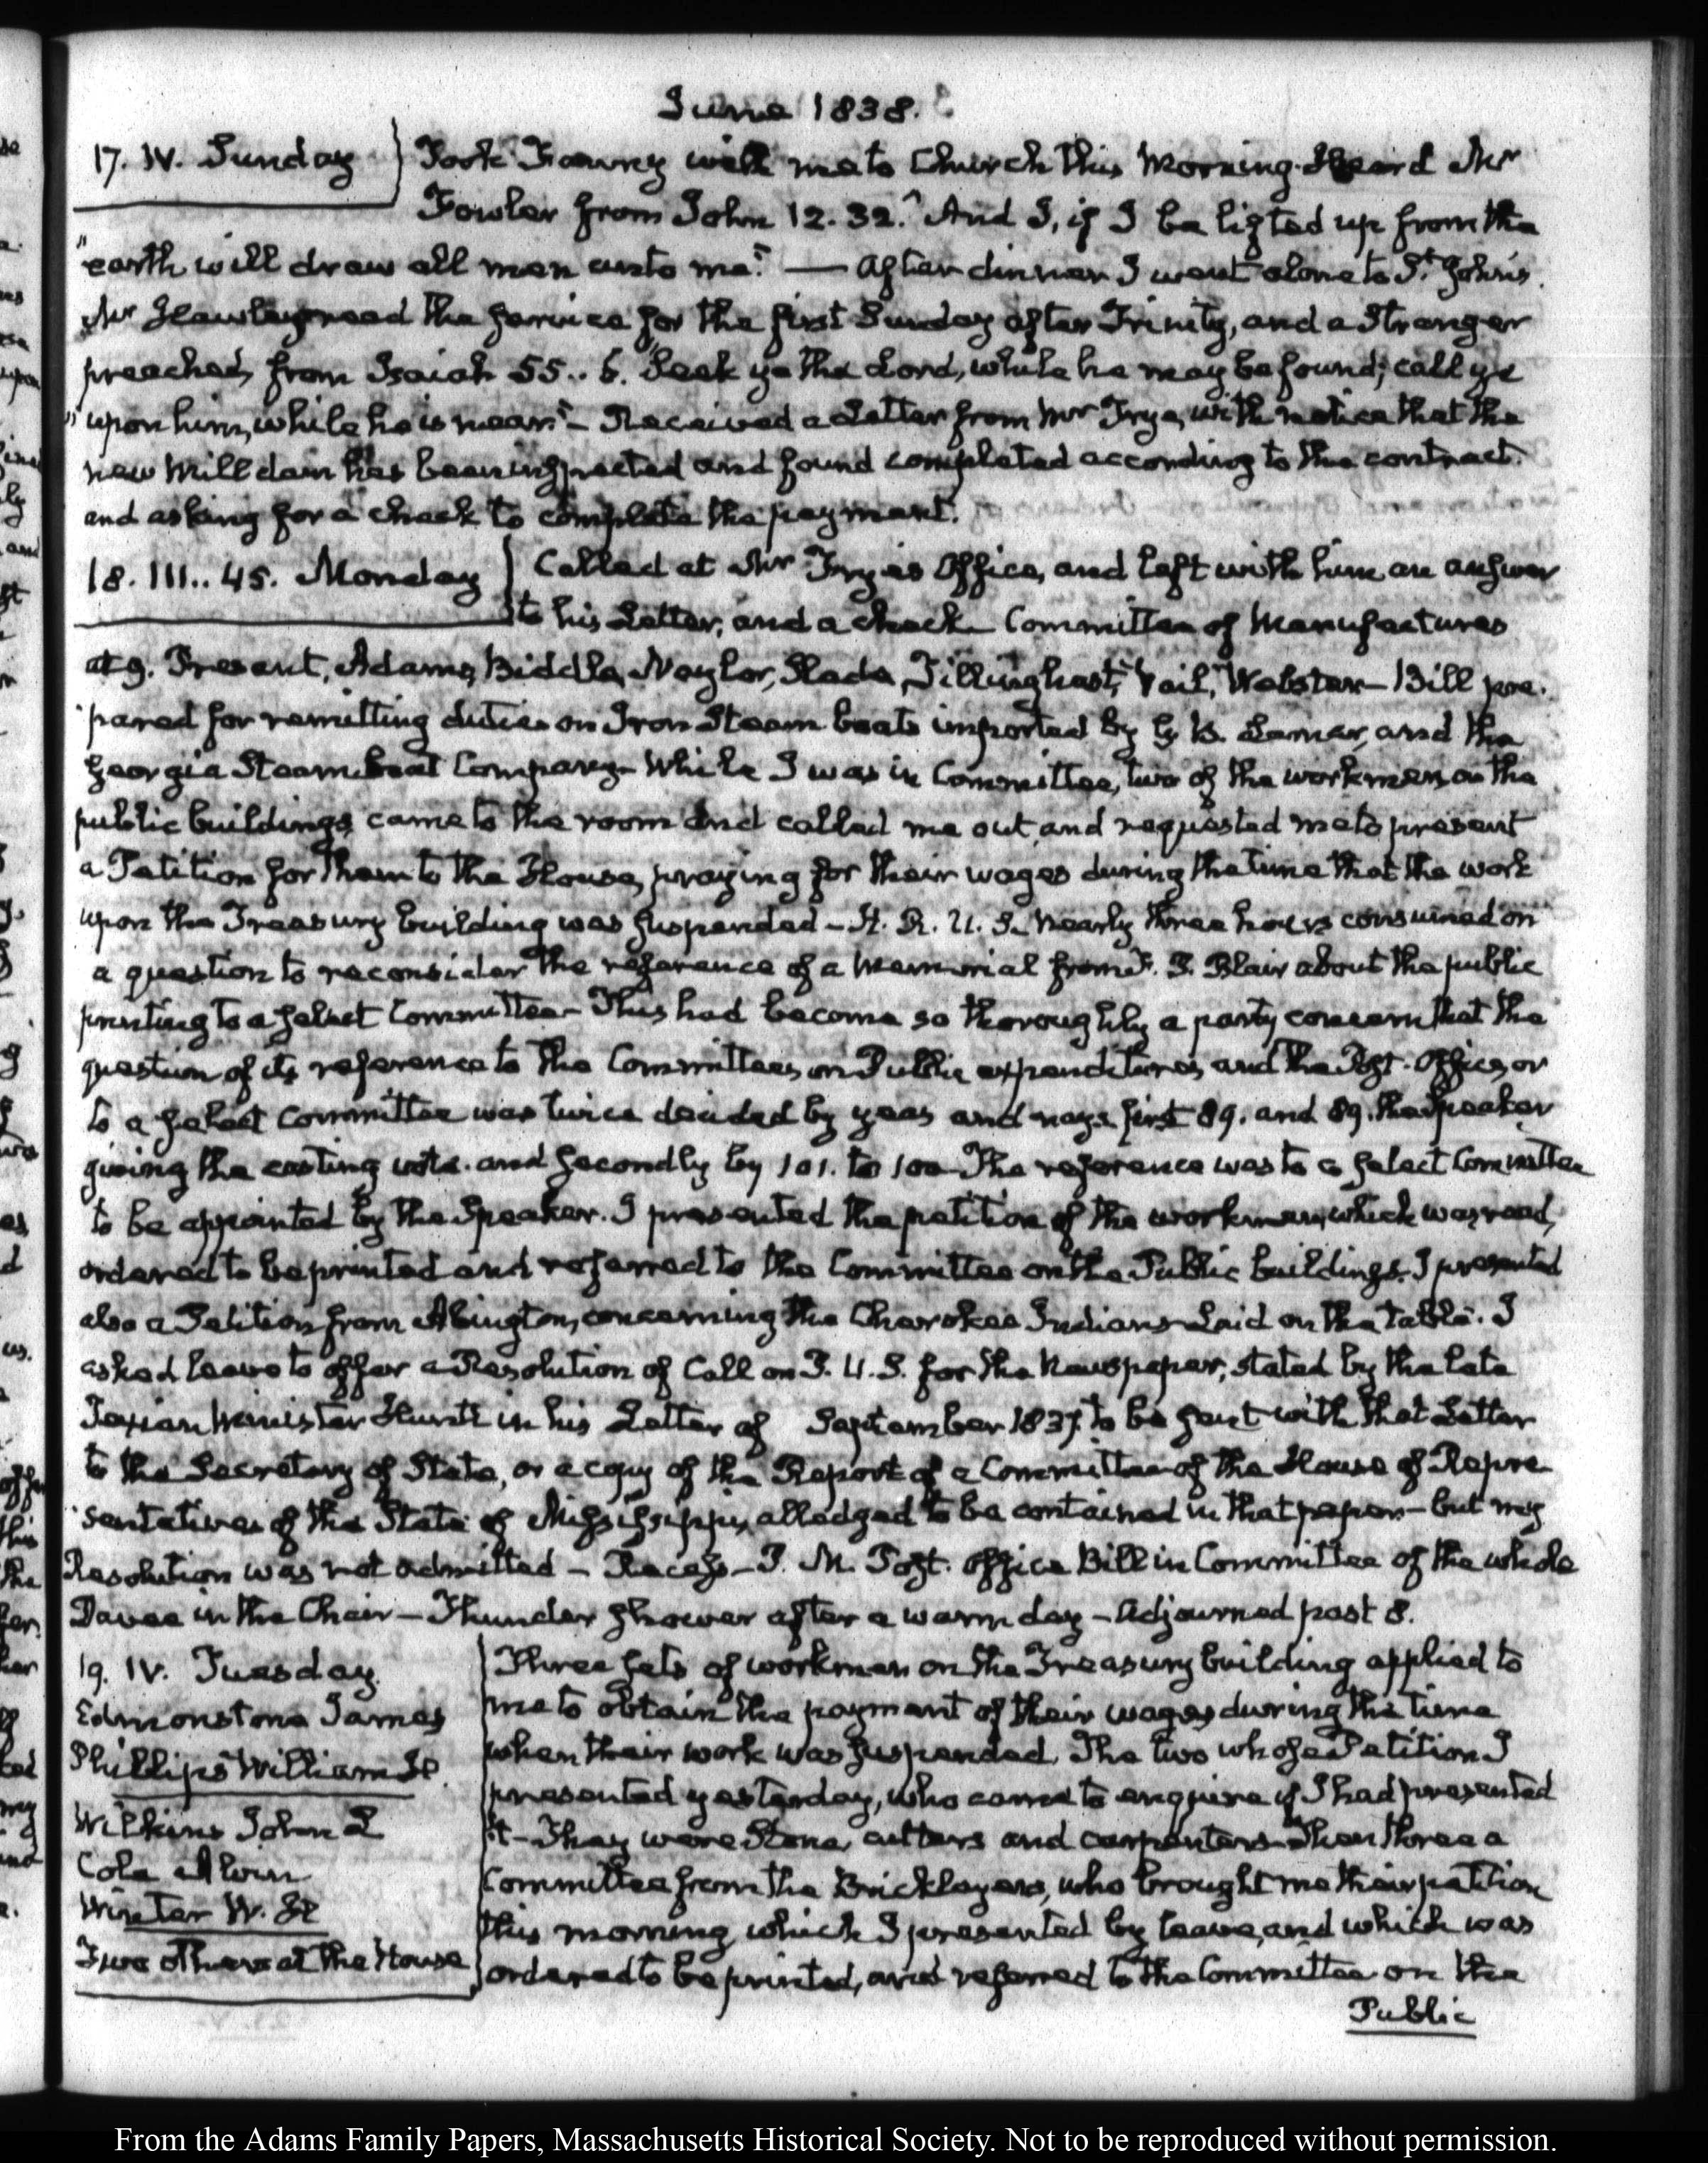 June 1838.
17. IV. Sunday
Took Fanny with me to Church this Morning. Heard Mr
Fowler from John 12. 32. "And I, if I be lifted up from the
"earth will draw all men unto me." — After dinner I went alone to St. John's.
Mr Hawley read the service for the first Sunday after Trinity, and a Stranger
preached, from Isaiah 55. 6. Seek ye the Lord, while he may be found; call ye
"upon him, while he is near" – Received a Letter from Mr Frye, with notice that the
new Mill dam has been inspected and found completed according to the contract.
and asking for a check to complete the payment.
18. III.. 45. Monday
Called at Mr Frye's Office, and left with him an answer
to his Letter, and a check – Committee of Manufactures
at 9. Present, Adams, Biddle, Naylor, Slade, Tillinghast, Vail, Webster – Bill pre-
pared for remitting duties on Iron Steam boats imported by G. B. Lamar, and the
Georgia Steamboat Company – While I was in Committee, two of the workmen on the
public buildings came to the room and called me out, and requested me to present
a Petition for them to the House, praying for their wages during the time that the work
upon the Treasury building was suspended – H. R. U. S. Nearly three hours consumed on
a question to reconsider the reference of a Memorial from F. P. Blair about the public
printing to a select Committee – This had become so thoroughly a party concern that the
question of its reference to the Committees on Public expenditures, and the Post-Office, or
to a select Committee was twice decided by yeas and nays first 89. and 89. the Speaker
giving the casting vote. and secondly by 101. to 100 – The reference was to a select Committee
to be appointed by the Speaker. I presented the petition of the workmen, which was read,
ordered to be printed and referred to the Committee on the Public buildings. I presented
also a Petition from Abington, concerning the Cherokee Indians – Laid on the table. I
asked leave to offer a Resolution of Call on P. U. S. for the Newspaper, stated by the late
Texian Minister Hunt in his Letter of September 1837. to be sent with that Letter
to the Secretary of State, or a copy of the Report of a Committee of the House of Repre-
sentatives of the State of Mississippi, alledged to be contained in that paper – but my
Resolution was not admitted – Recess – P. M. Post. Office Bill in Committee of the whole
Davee in the Chair – Thunder shower after a warm day – Adjourned past 8.
19. IV. Tuesday.
Edmonstone James
Phillips William H.
Wilkins John L
Cole Alvin
Winter W. H
Two others at the House
Three sets of workmen on the Treasury building applied to
me to obtain the payment of their wages during the time
when their work was suspended. The two whose Petition I
presented yesterday, who came to enquire if I had presented
it – They were Stone cutters and carpenters – Then three a
Committee from the Bricklayers, who brought me their petition
this morning which I presented by leave, and which was
ordered to be printed, and referred to the Committee on the
Public
From the Adams Family Papers, Massachusetts Historical Society. Not to be reproduced without permission.